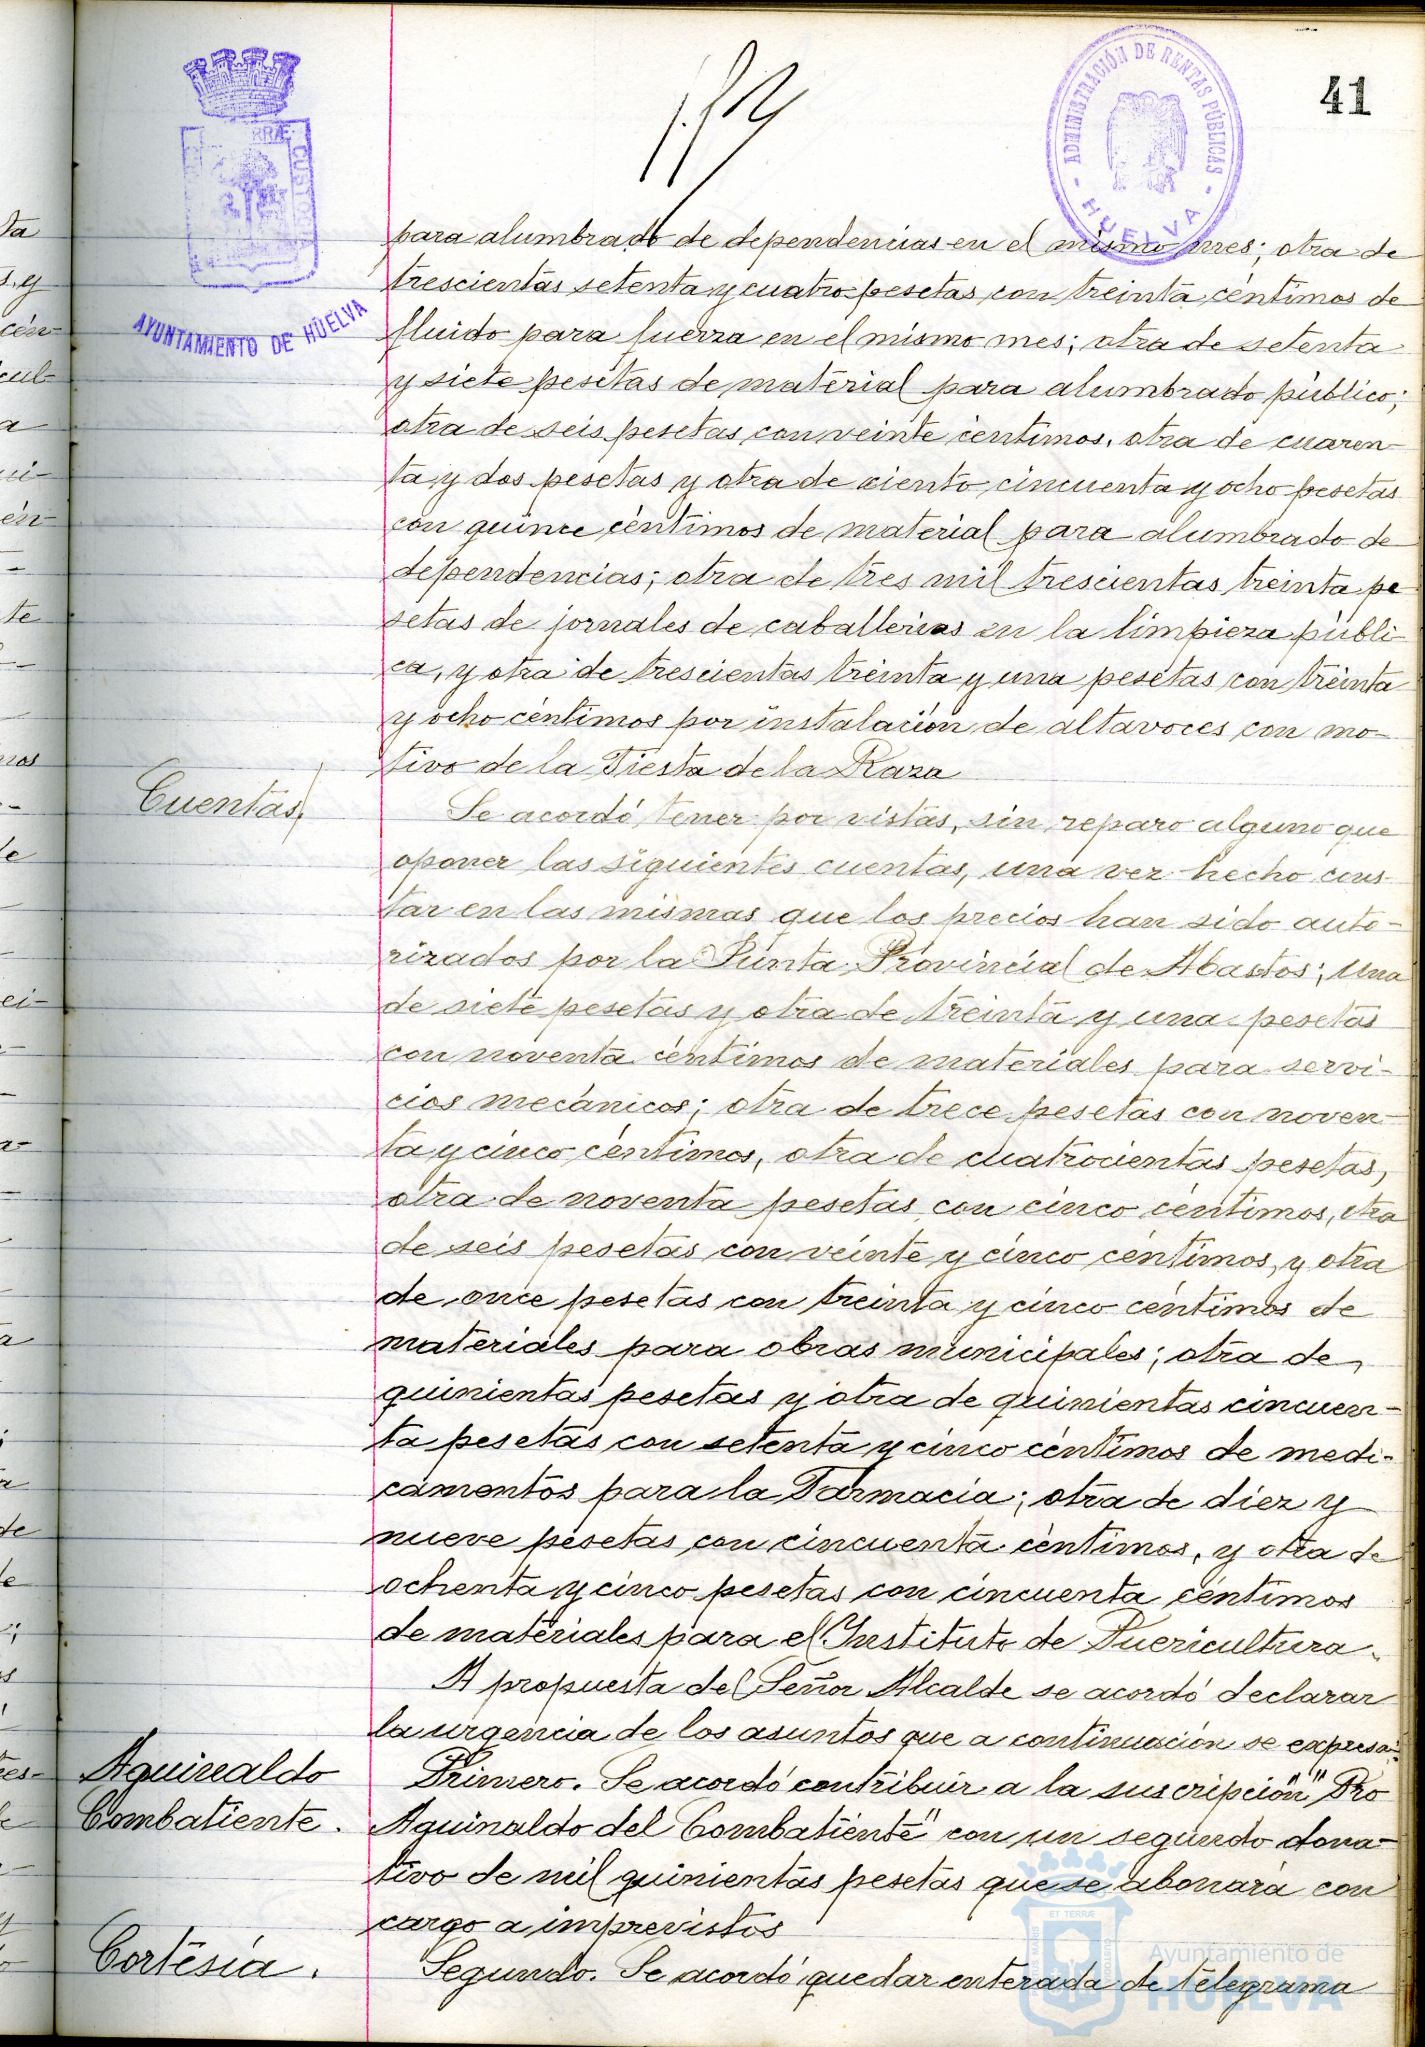 41
ADMINISTRACIÓN DE RENTAS PÚBLICAS
HUELVA
RRÆ CUSTO
AYUNTAMIENTO DE HUELVA
para alumbrado de dependencias en el mismo mes; otra de
trescientas setenta y cuatro pesetas con treinta céntimos de
fluido para fuerza en el mismo mes; otra de setenta
y siete pesetas de material para alumbrado público;
otra de seis pesetas con veinte céntimos, otra de cuaren-
ta y dos pesetas y otra de ciento cincuenta y ocho pesetas
con quince céntimos de material para alumbrado de
dependencias; otra de tres mil trescientas treinta pe
setas de jornales de caballerias en la limpieza públi-
ca, y otra de trescientas treinta y una pesetas con treinta
y ocho céntimos por instalación de altavoces con mo-
tivo de la Fiesta de la Raza
Cuentas
Se acordó tener por vistas, sin reparo alguno que
oponer las siguientes cuentas, una vez hecho cons-
tar en las mismas que los precios han sido auto-
rizados por la Junta Provincial de Abastos; una
de siete pesetas y otra de treinta y una pesetas
con noventa céntimos de materiales para servi-
cios mecánicos; otra de trece pesetas con noven-
ta y cinco céntimos, otra de cuatrocientas pesetas,
otra de noventa pesetas con cinco céntimos, otra
de seis pesetas con veinte y cinco céntimos, y otra
de once pesetas con treinta y cinco céntimos de
materiales para obras municipales; otra de
quinientas pesetas y otra de quinientas cincuen-
ta pesetas con setenta y cinco céntimos de medi-
camentos para la Farmacia; otra de diez y
nueve pesetas con cincuenta céntimos, y otra de
ochenta y cinco pesetas con cincuenta céntimos
de materiales para el Instituto de Puericultura.
A propuesta del Señor Alcalde se acordó declarar
la urgencia de los asuntos que a continuación se expresa:
Aguinaldo
Combatiente.
Primero. Se acordó contribuir a la suscripción "Pro
Aguinaldo del Combatiente" con un segundo dona-
tivo de mil quinientas pesetas que se abonará con
cargo a imprevistos
Cortesía.
Segundo. Se acordó quedar enterada de telegrama
Ayuntamiento de
HUELVA